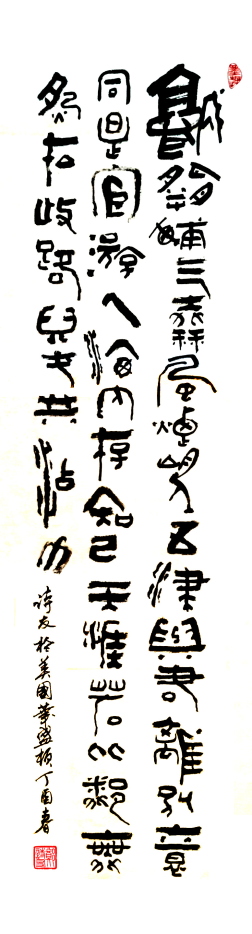 城闕輔三秦風煙望五津與君離別意
同是宦游人海内存知己天涯若比鄰無
為在歧路兒女共沾巾
诗友於美國華盛頓丁酉春